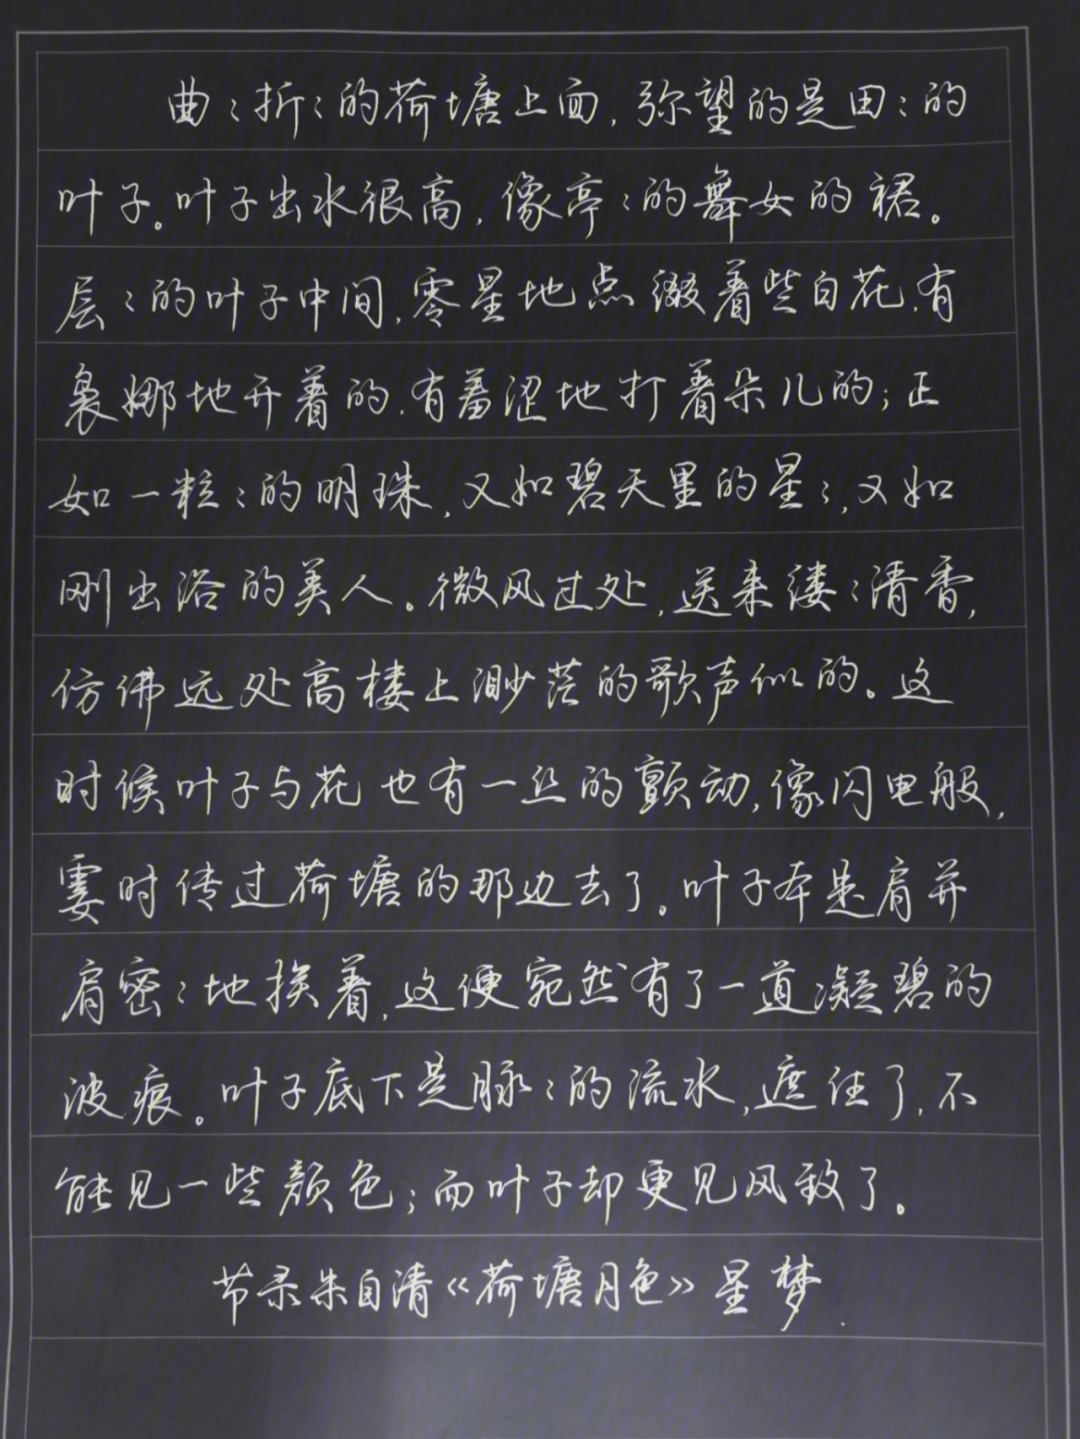 曲〻折〻的荷塘上面,弥望的是田〻的
叶子。叶子出水很高,像亭〻的舞女的裙。
层〻的叶子中间,零星地点缀着些白花,有
袅娜地开着的,有羞涩地打着朵儿的;正
如一粒〻的明珠,又如碧天里的星〻,又如
刚出浴的美人。微风过处,送来缕〻清香,
仿佛远处高楼上渺茫的歌声似的。这
时候叶子与花也有一丝的颤动,像闪电般,
霎时传过荷塘的那边去了。叶子本是肩并
肩密〻地挨着,这便宛然有了一道凝碧的
波痕。叶子底下是脉〻的流水,遮住了,不
能见一些颜色;而叶子却更见风致了。
节录朱自清《荷塘月色》星梦.